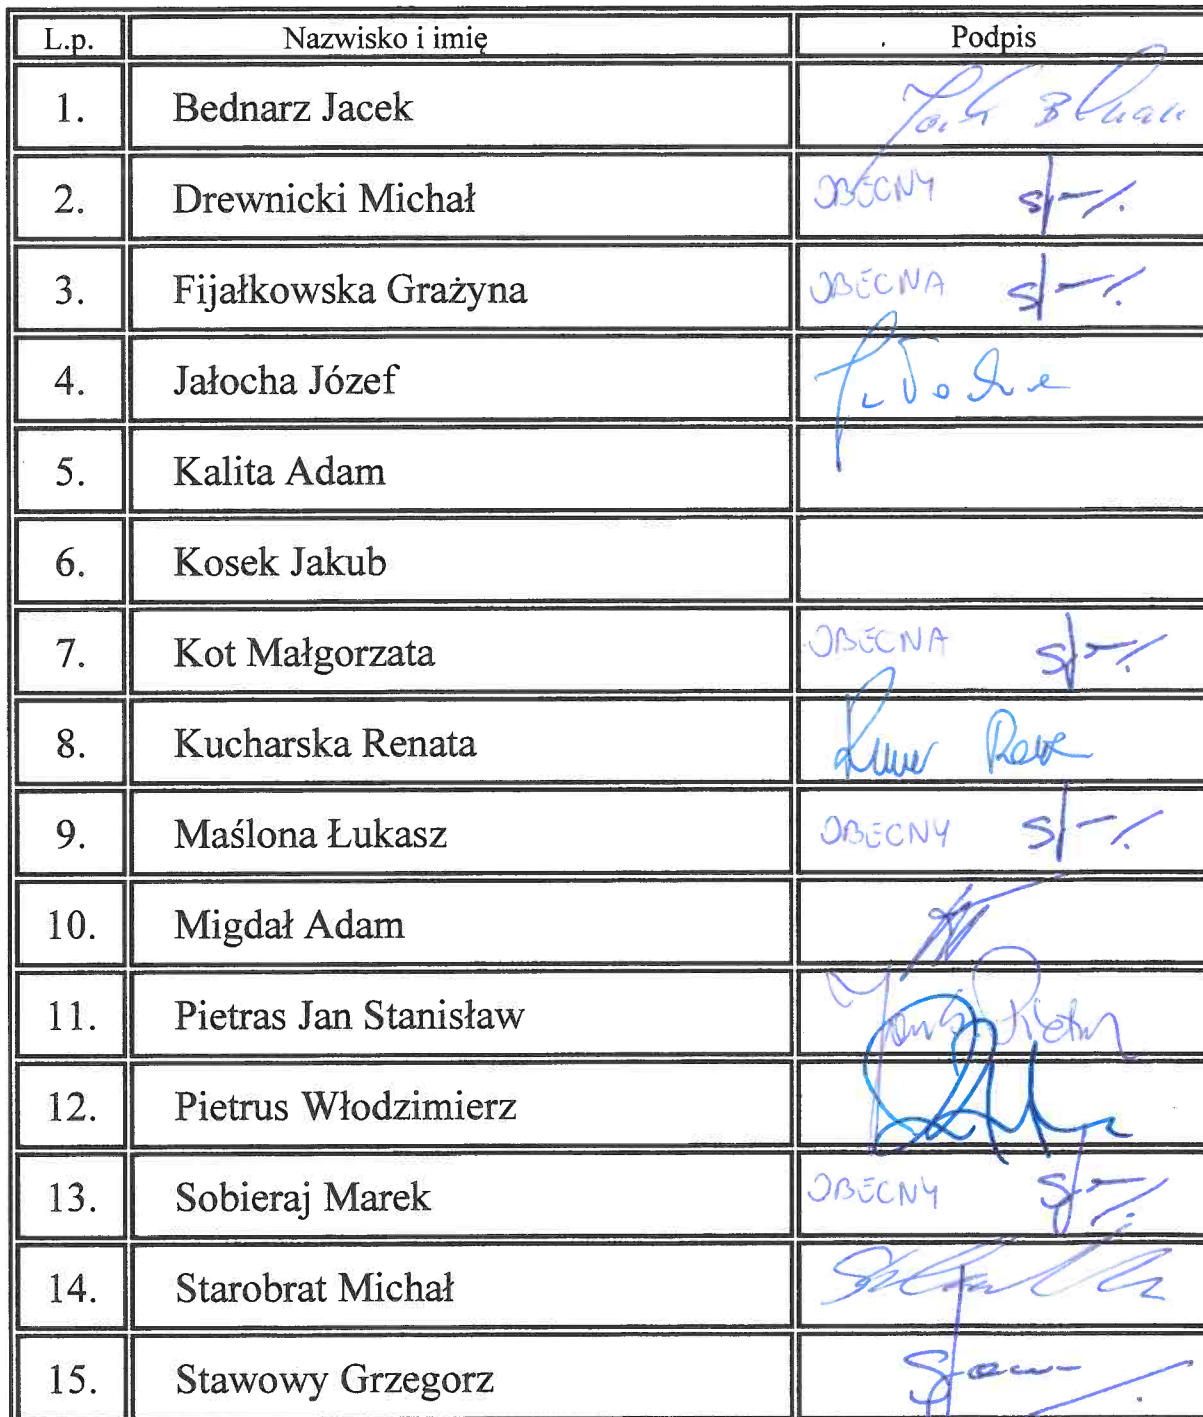 L.p. Nazwisko i imię Podpis
1. Bednarz Jacek
2. Drewnicki Michał OBECNY
3. Fijałkowska Grażyna OBECNA
4. Jałocha Józef
5. Kalita Adam
6. Kosek Jakub
7. Kot Małgorzata OBECNA
8. Kucharska Renata
9. Maślona Łukasz OBECNY
10. Migdał Adam
11. Pietras Jan Stanisław
12. Pietrus Włodzimierz
13. Sobieraj Marek OBECNY
14. Starobrat Michał
15. Stawowy Grzegorz